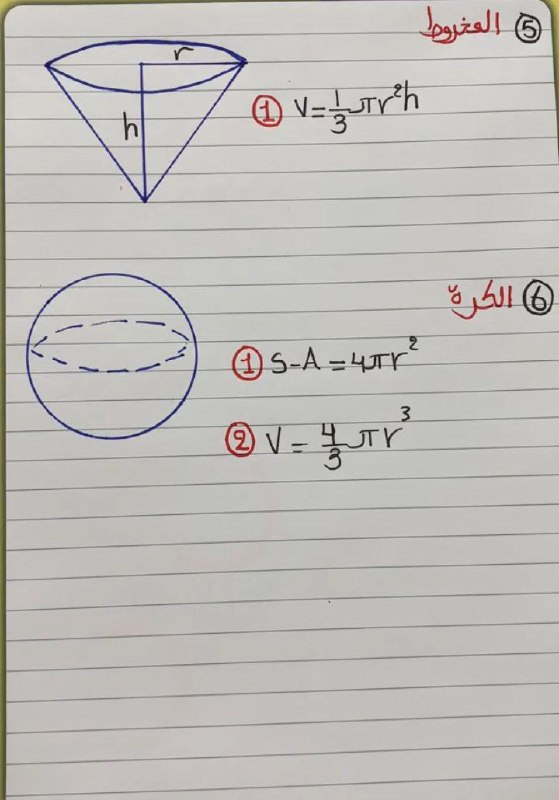 ⑤ المخروط
r
h
① V=1/3 πr²h
⑥ الكرة
① S-A = 4πr²
② V = 4/3 πr³